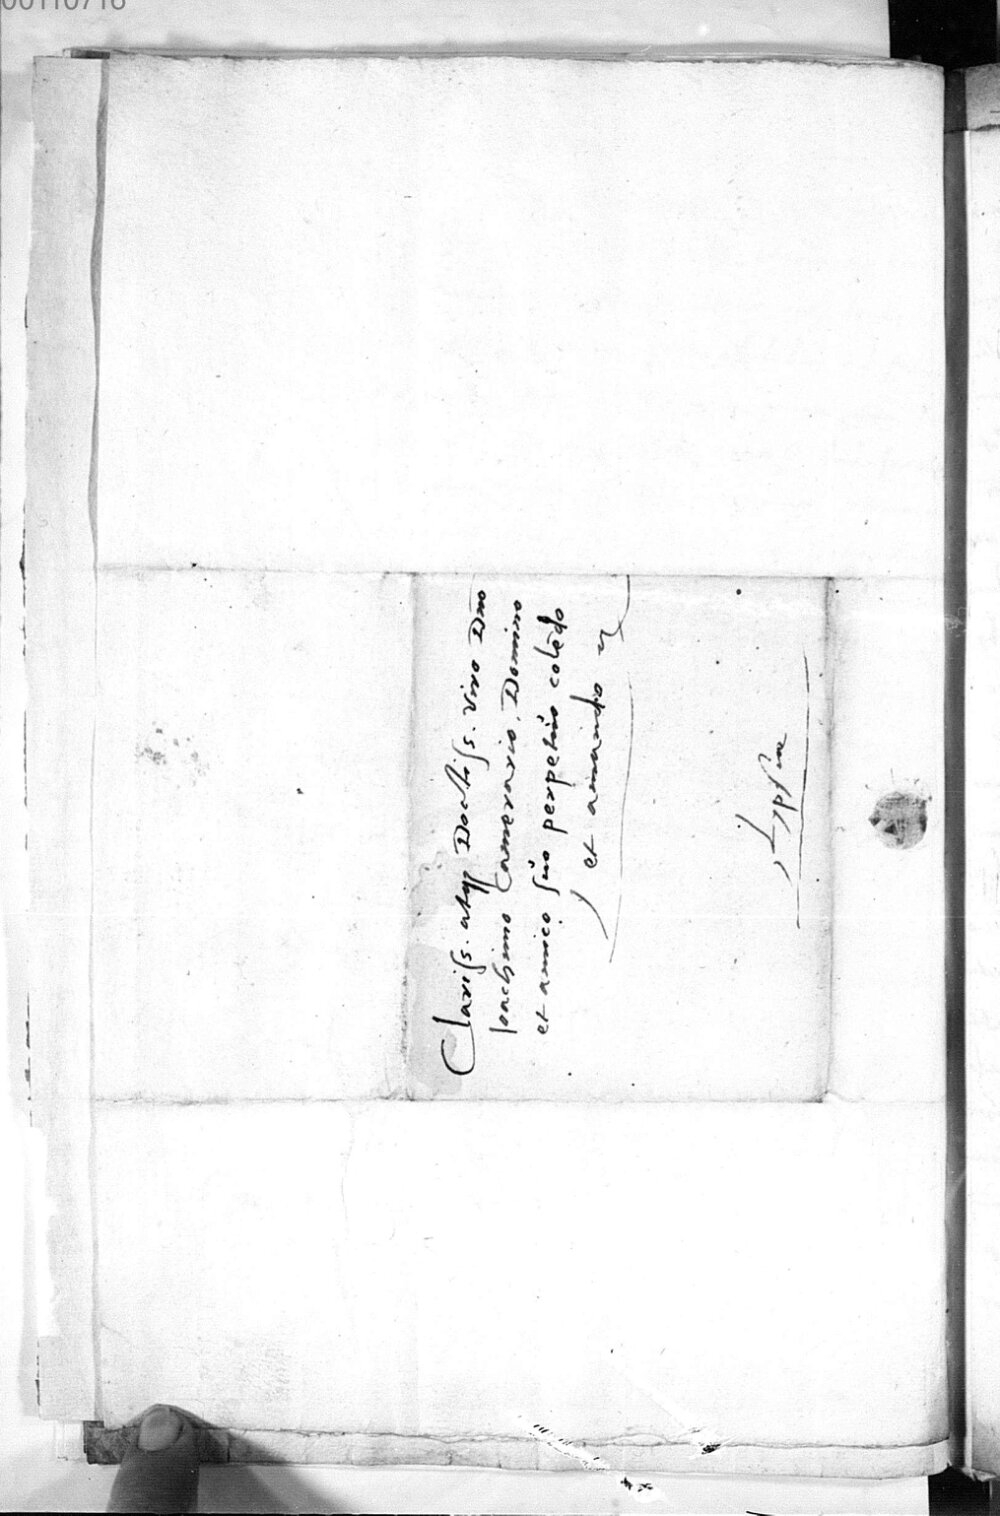 00110716
Clariss. atqꝫ Doctiss. viro Dno
Ioachimo Camerario, Domino
et amico suo perpetuo colēdo
et amando